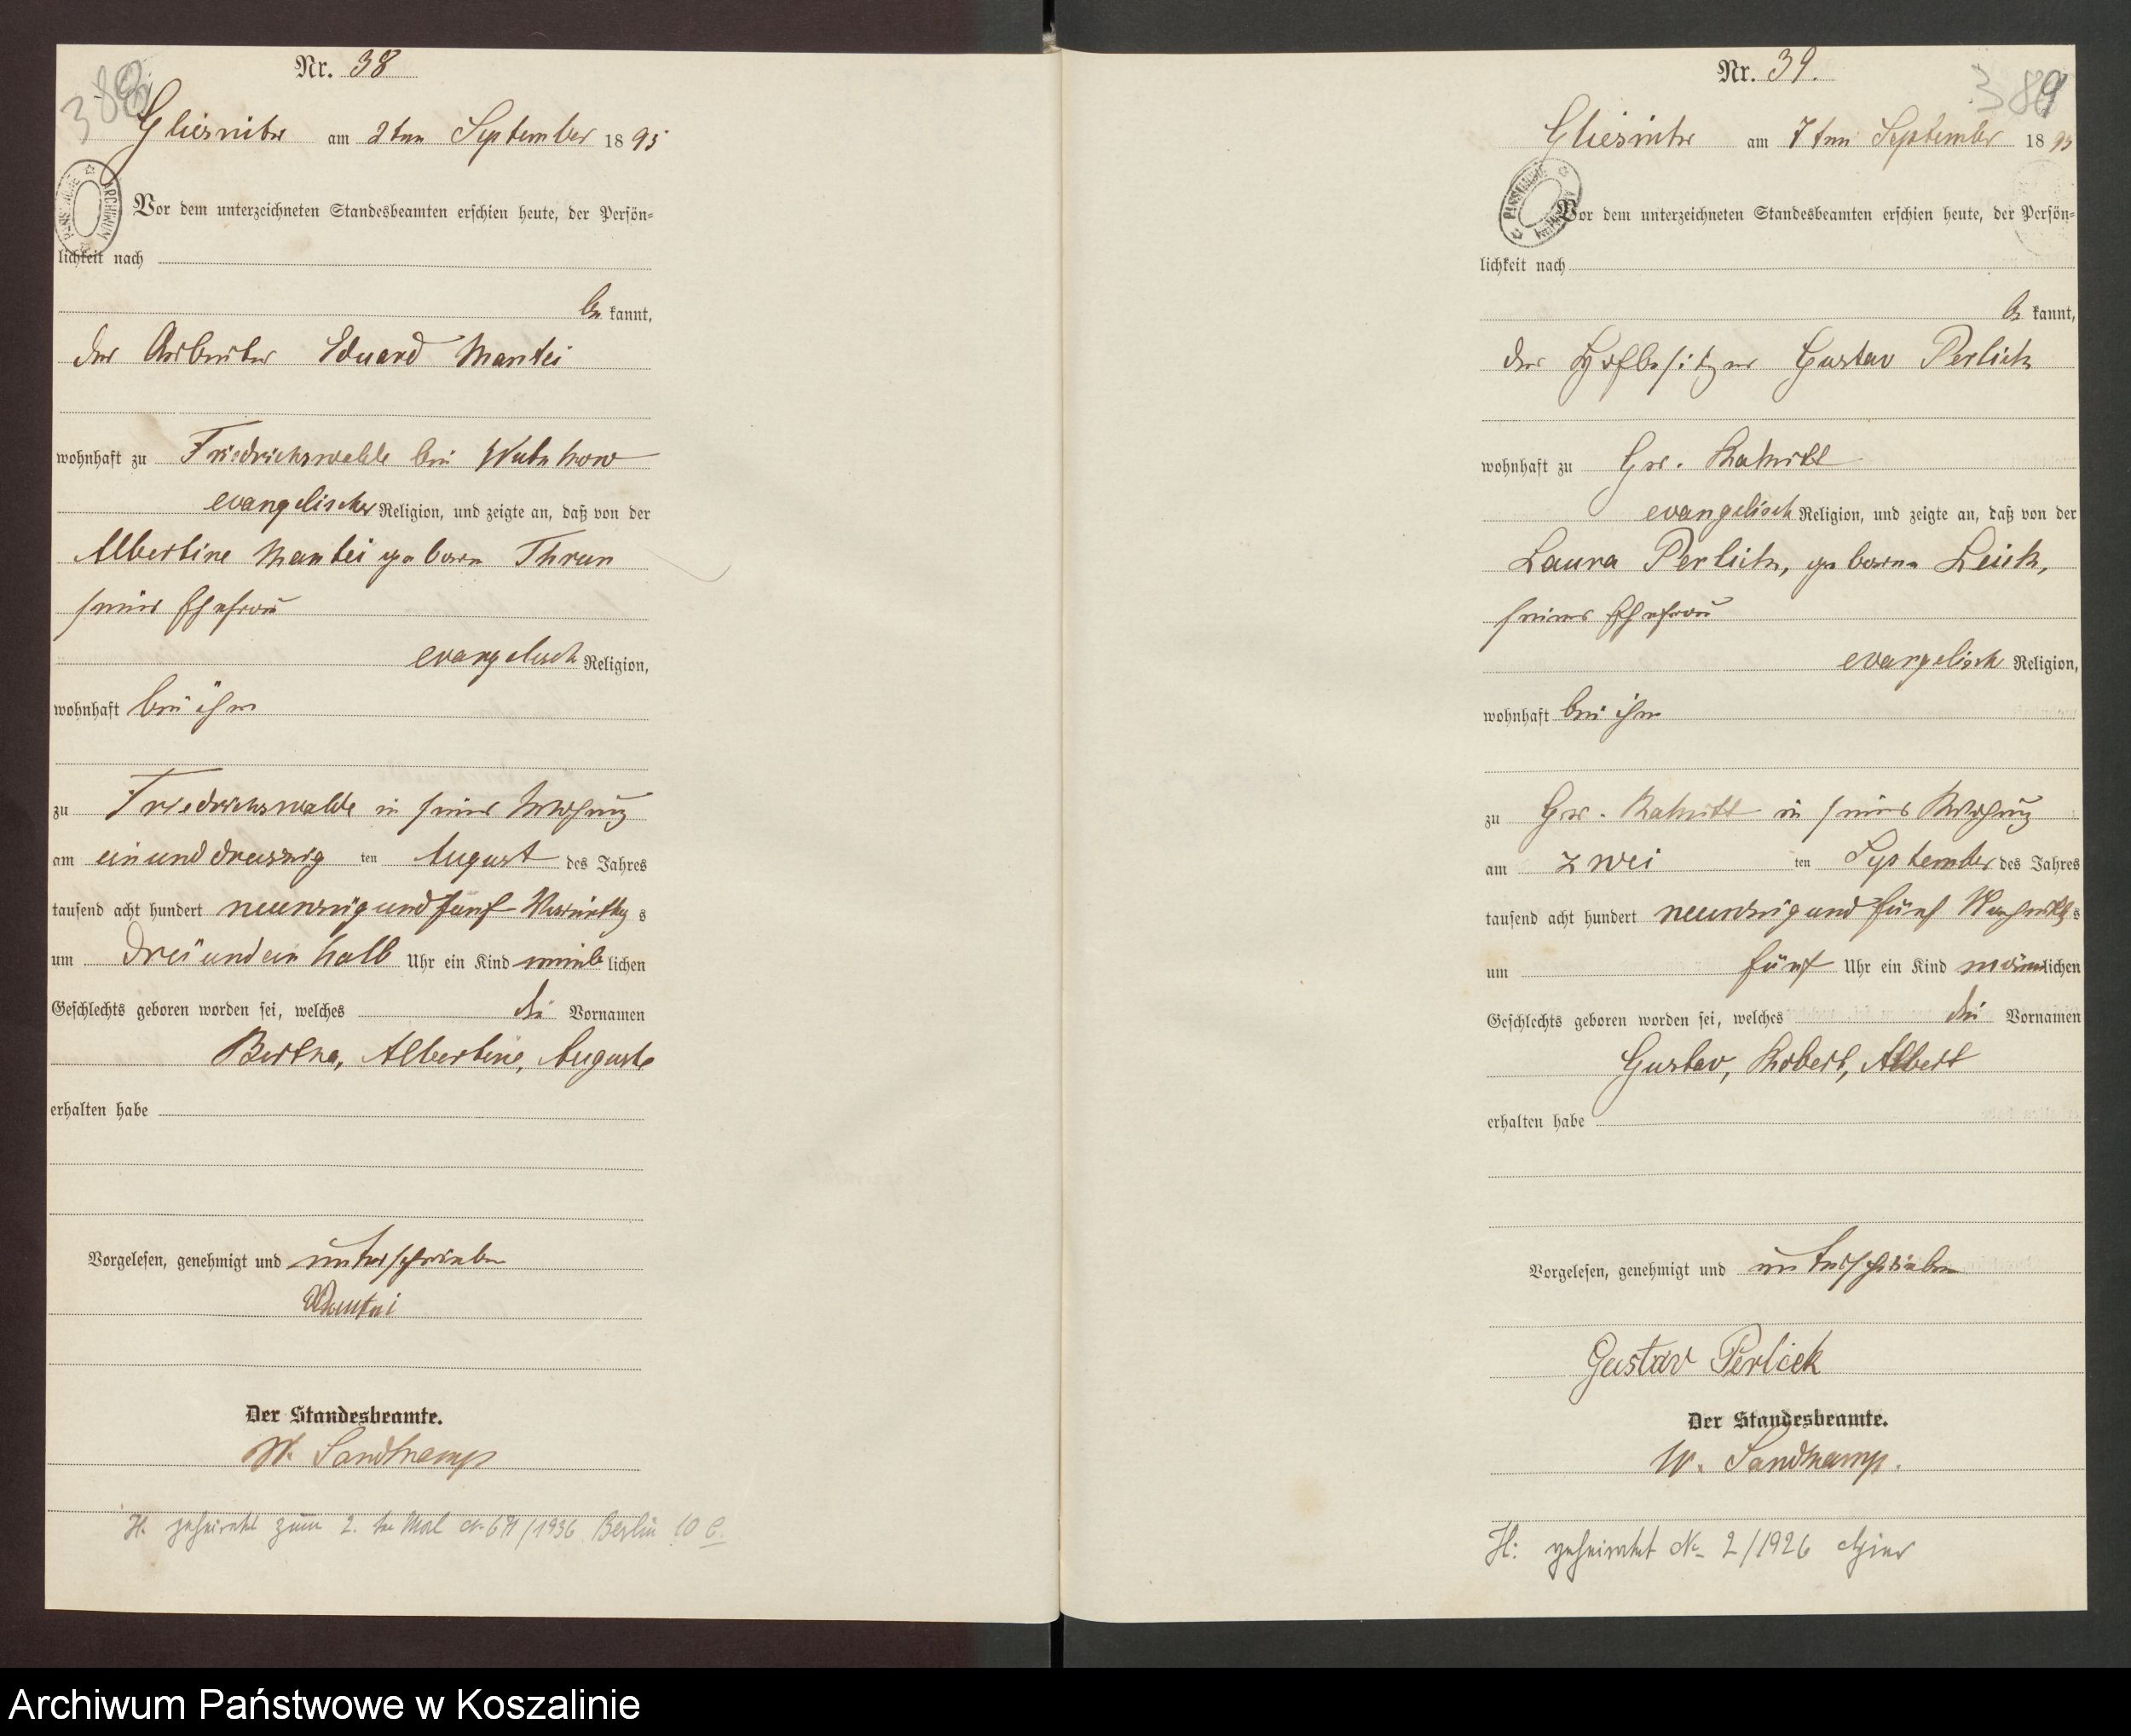 Nr. 38
388
Gliesnitz am 2ten September 1895
Vor dem unterzeichneten Standesbeamten erschien heute, der Persön=
lichkeit nach
be kannt,
der Arbeiter Eduard Mantei
wohnhaft zu Friedrichswalde bei
evangelischer Religion, und zeigte an, daß von der
Albertine Mantei geborn
seiner Ehefrau
evangelisch Religion,
wohnhaft bei ihm
zu Friedrichswalde in seiner Wohnung
am einunddreiszig ten August des Jahres
tausend acht hundert neunzig und fünf Vormittag s
um drei und ein halb Uhr ein Kind weib lichen
Geschlechts geboren worden sei, welches die Vornamen
Bertha, Albertine, Auguste
erhalten habe
Vorgelesen, genehmigt und unterschrieben
Mantei
Der Standesbeamte.
W. Sandkamp
H. geheiratet zum 2. ten Mal /1936 Berlin
Nr. 39.
389
Gliesnitz am 7ten September 1895
Vor dem unterzeichneten Standesbeamten erschien heute, der Persön=
lichkeit nach
be kannt,
der Hofbesitzer Gustav Perlick
wohnhaft zu Gr.
evangelisch Religion, und zeigte an, daß von der
Laura Perlick, geborne Leick,
seiner Ehefrau
evangelisch Religion,
wohnhaft bei ihm
zu Gr. in seiner Wohnung
am zwei ten September des Jahres
tausend acht hundert neunzig und fünf Nachmittag s
um fünf Uhr ein Kind männlichen
Geschlechts geboren worden sei, welches die Vornamen
Gustav, Robert, Albert
erhalten habe
Vorgelesen, genehmigt und unterschrieben
Gustav Perlick
Der Standesbeamte.
W. Sandkamp.
H: geheiratet Nr. 2/1926
Archiwum Państwowe w Koszalinie